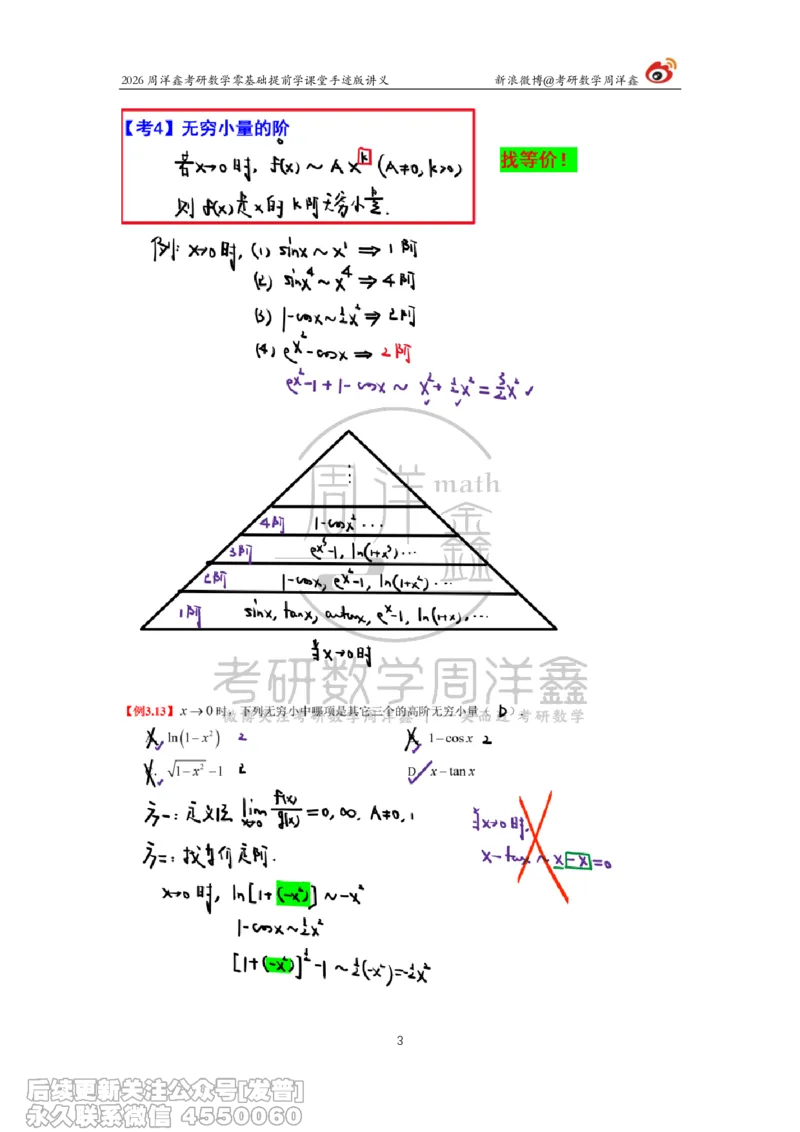 2026 周洋鑫考研数学零基础提前学课堂手迹版讲义 新浪微博@考研数学周洋鑫
【考4】无穷小量的阶
若x→0时, f(x) ~ A x^k (A≠0, k>0)
找等价!
则 f(x)是x的 k阶无穷小量.
例: x→0时, (1) sinx ~ x^1 ⇒ 1阶
(2) sinx^4 ~ x^4 ⇒ 4阶
(3) 1-cosx ~ 1/2 x^2 ⇒ 2阶
(4) e^{x^2}-cosx ⇒ 2阶
e^{x^2}-1+1-cosx ~ x^2+1/2 x^2 = 3/2 x^2 ✓
周洋鑫 math
4阶 1-cosx^2 ...
3阶 e^{x^3}-1, ln(1+x^3)...
2阶 1-cosx, e^{x^2}-1, ln(1+x^2)...
1阶 sinx, tanx, arctanx, e^x-1, ln(1+x), ...
当x→0时
考研数学周洋鑫
【例3.13】x→0时, 下列无穷小中哪项是其它三个的高阶无穷小量( D ).
ln(1-x^2) 2 1-cosx 2
√(1-x^2)-1 2 D. x-tanx
方一: 定义法 lim x→0 f(x)/g(x) = 0, ∞, A≠0, 1
当x→0时,
方二: 找等价定阶.
x-tanx ~ x-x=0
x→0时, ln[1+(-x^2)] ~ -x^2
1-cosx ~ 1/2 x^2
[1+(-x^2)]^{1/2}-1 ~ 1/2(-x^2)=-1/2 x^2
3
后续更新关注公众号[发普]
永久联系微信 4550060